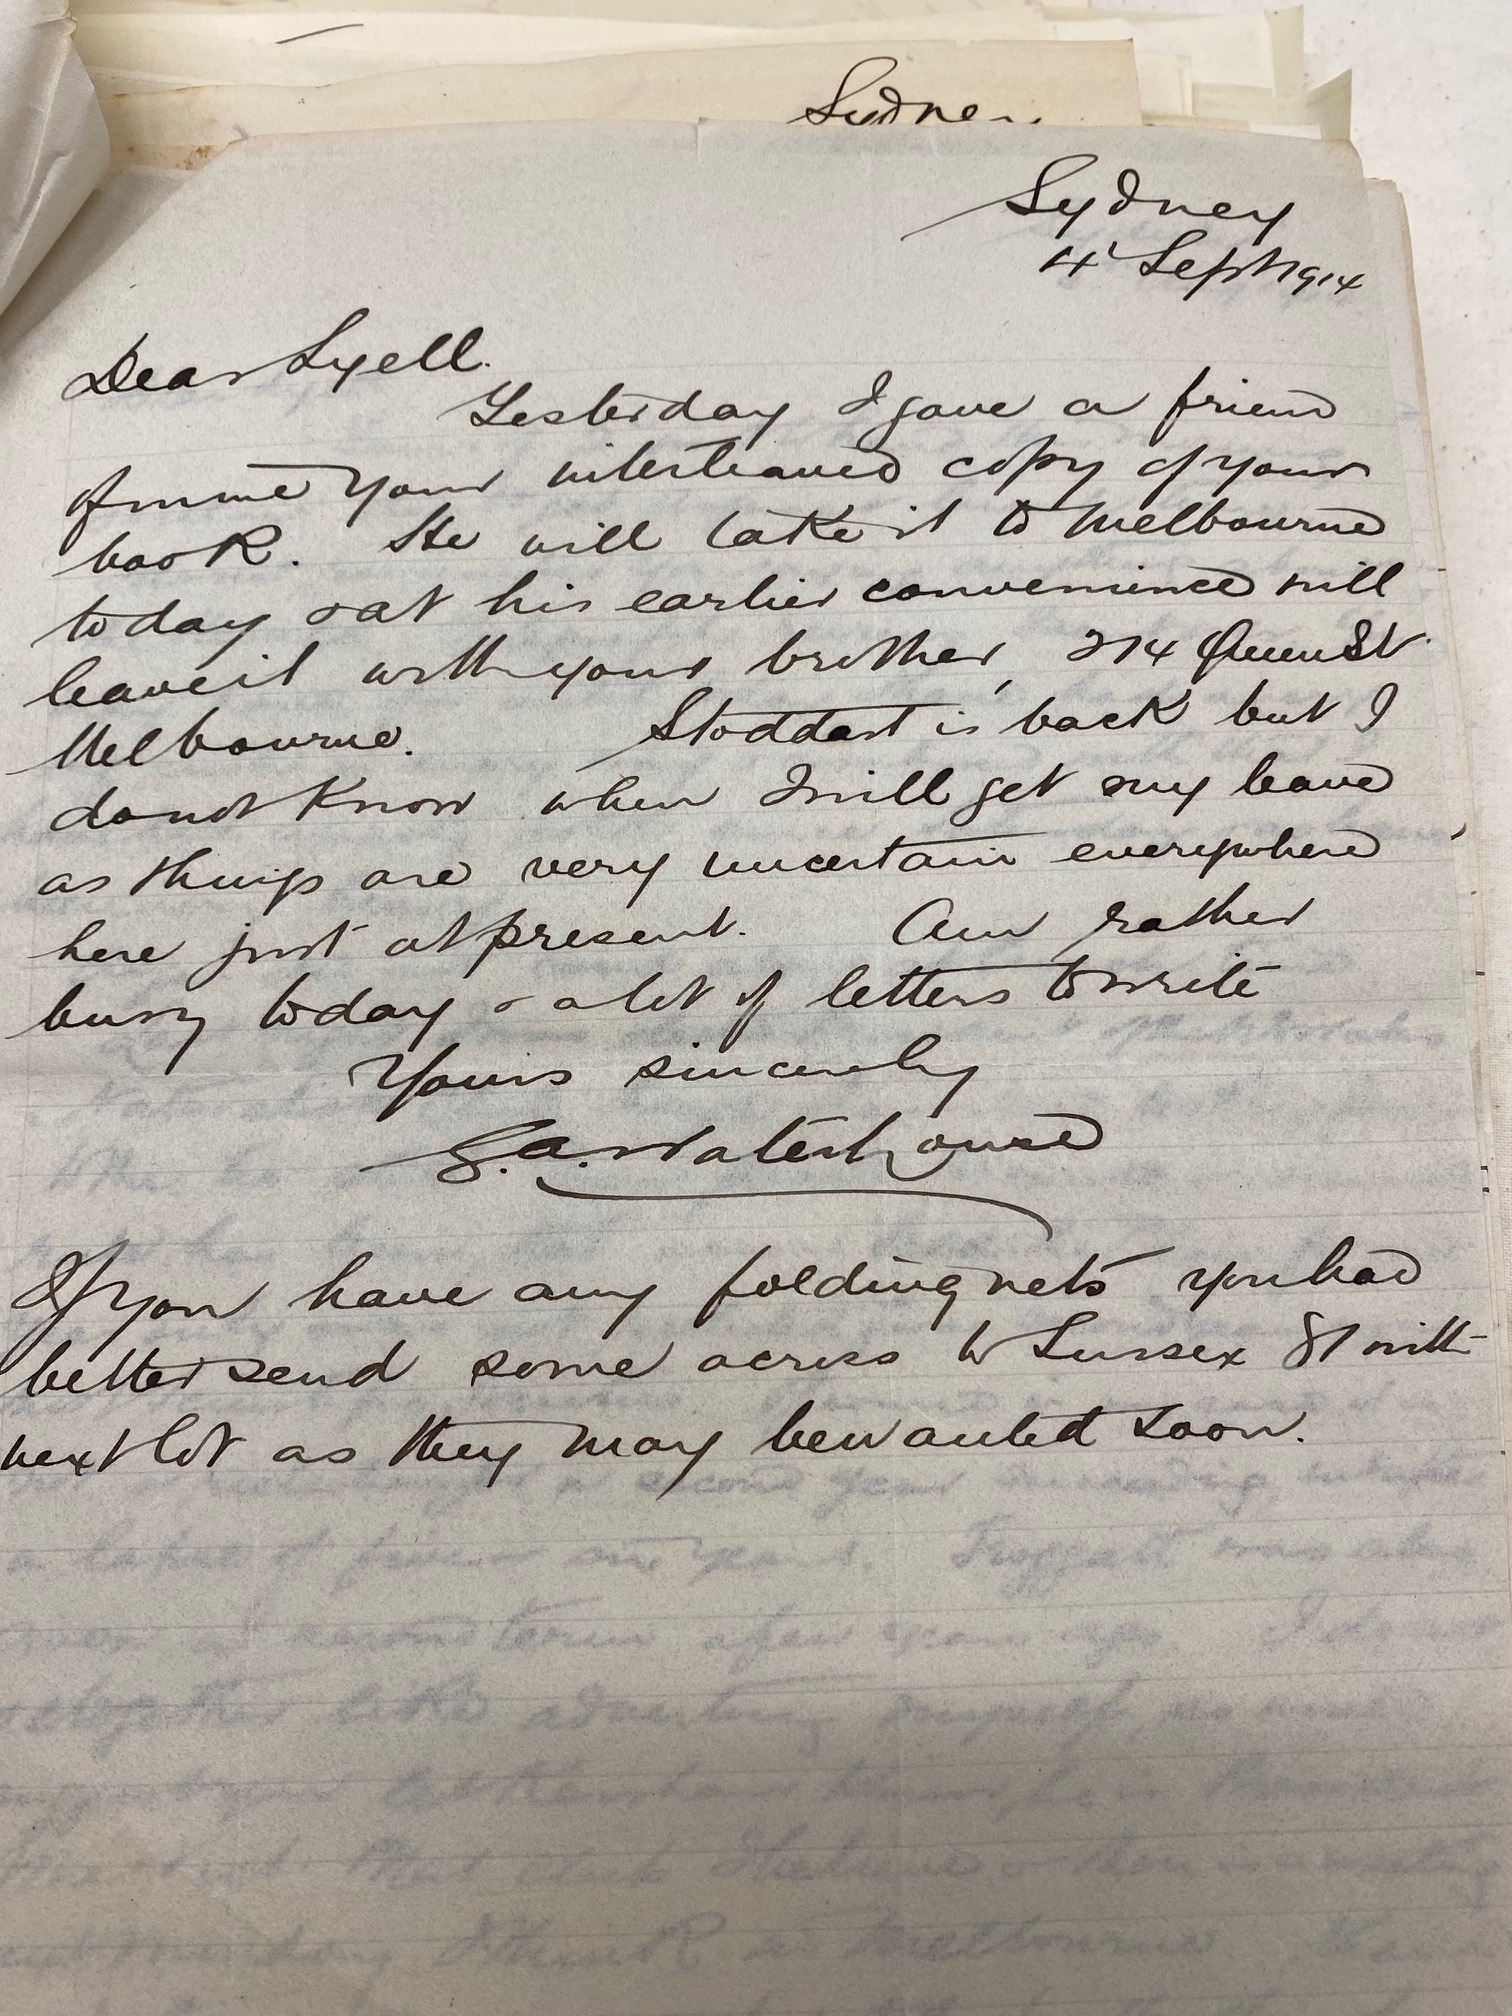 Sydney
Sydney
4 Sept 1914
Dear Lyell.
Yesterday I gave a friend
of mine your interleaved copy of your
book. He will take it to Melbourne
today & at his earlier convenience will
leave it with your brother, 274 Queen St
Melbourne. Stoddart is back but I
do not know when I will get my leave
as things are very uncertain everywhere
here just at present. Am rather
busy today & a lot of letters to write
Yours sincerely
G.A. Waterhouse
If you have any folding nets you had
better send some across to Sussex St with
next lot as they may be wanted soon.